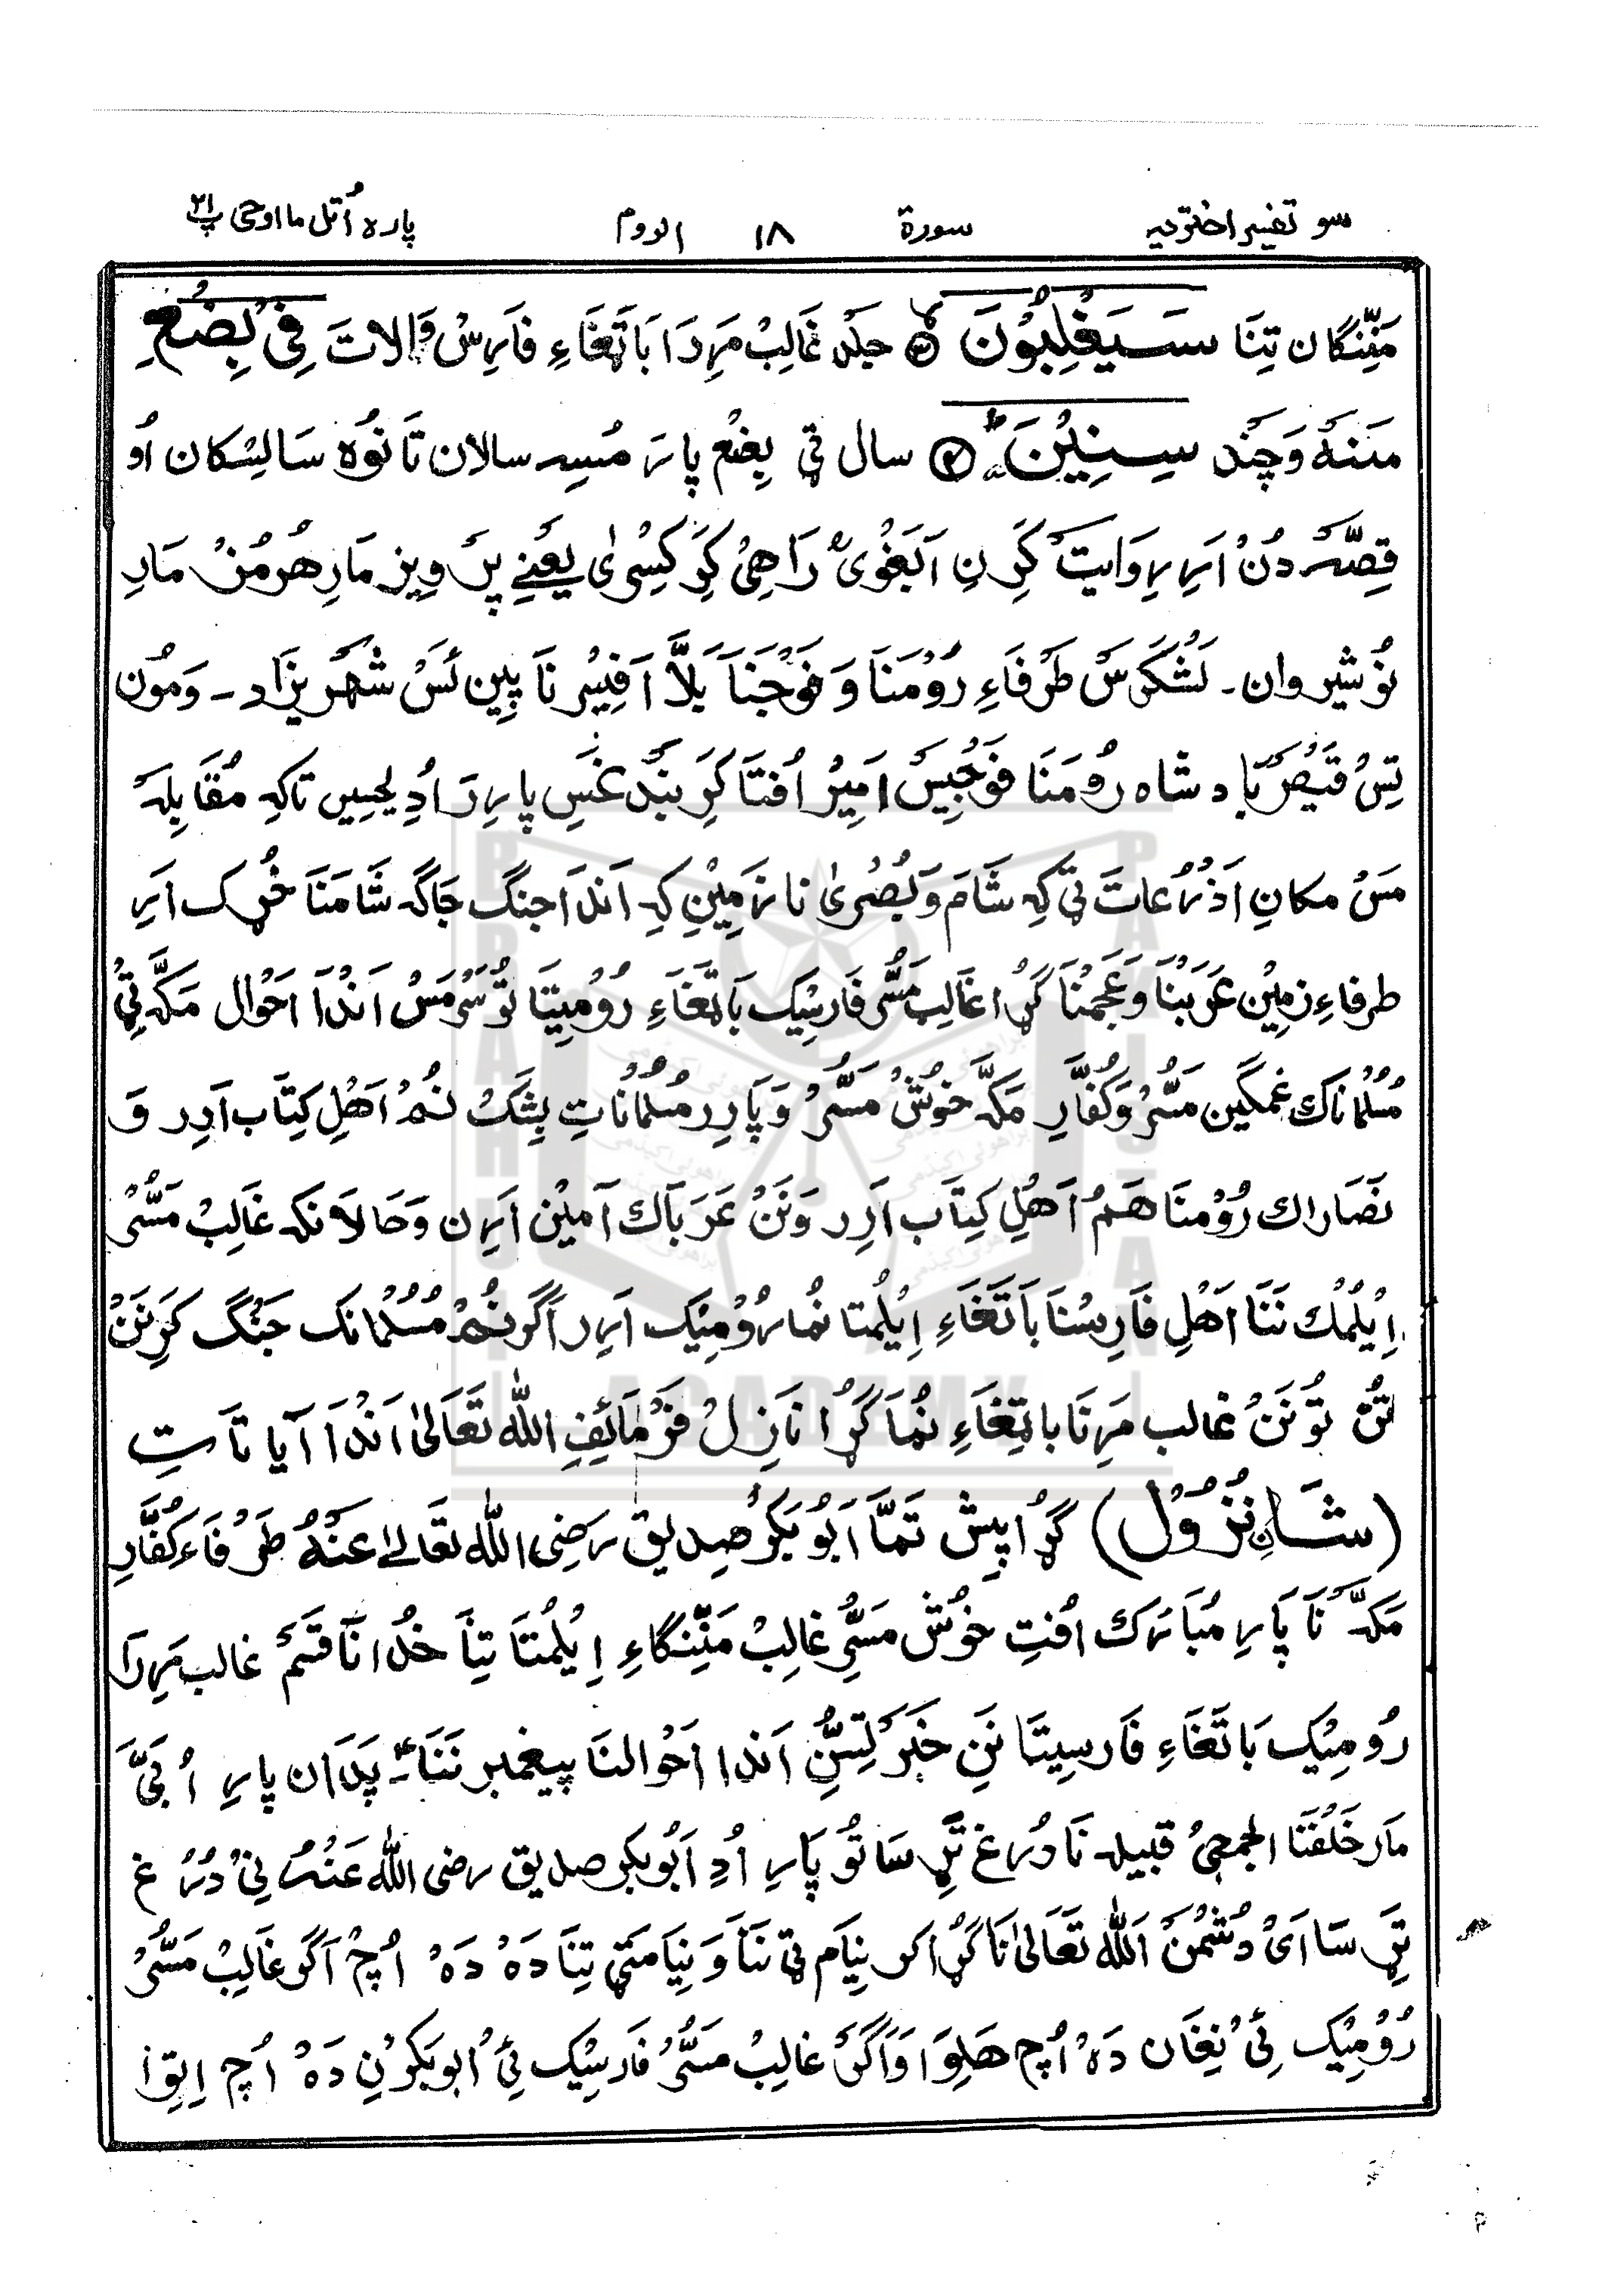 سو تفسیر اختریه سورة ١٨ الروم پاره اُتل ما اوحی پ ٢١
مَنِّنگان تِنَا سَيَغْلِبُوْنَ ٣ جلد غالِبْ مَرِرَا بَاتَغَاءِ فَارِسْ وَالاتَ فِیْ بِضْعِ
مَنه وَ چَند سِنِيْنَ ٤ سال ٹی بِضْع پارَ مُسِہ سالان تا نُوہ سَالِسْکان اُو
قِصّہ دُنْ اَرِر رِوَایَتْ کَرِنِ اَلبَغْوِیْ رَاهِیْ کَرِ کِسْرٰی یعْنِے پَرْوِیز مَارِ هُرمُزْ مَارِ
نُوشیروان۔ لَشْکَرَسْ طَرْفَاءِ رُوْمَنَا وَ فَوْجْنَا بَلَّا اَفِیْسَر نَا پِین ئَسْ شَهَریزَاد۔ وَمُون
تِسْ قَیْصَر بَادشاه رُوْمَنَا فَوْجَسِ اَمِیرْ اُفتَا کَرِ بَنْدغَسِ پارِرَ اُدِ یحییٰ تاکِہ مُقَابِلَہ
مَسْ مکانِ اَذْرُعاتَ ٹی کِہ شَام وَ بُصْریٰ نا زَمِیْنِ کِہ اَندَا جنگ جَاگہ شَامَنَا خُڑک اَرِ
طرفاءِ زمِیْن عَرَبْنَا وَ عَجَمْنَا گُڑا غَالِبْ مَسُّرْ فَارسِیْک بَاتَغَاءِ رُوْمِیتَا تُو سُرْمَسْ اَنْدَا اَحْوَال مَکَّہ ٹی
مُسُلْمَاناک غَمگین مَسُّرْ وَ کُفَّارِ مَکَّہ خُوْش مَسُّرْ وَ پَارِر مُسُلْمَاناتِ بِشَکْ نُمْ اَهْلِ کِتَاب اَرِر وَ
نَصَاراک رُوْمنَا هَمْ اَهْلِ کِتَاب اَرِر وَنَنْ عَرَبَاک اُمِیْن اَرِن وَحَالاَنکہ غَالِبْ مَسُّرْ
اِیْلُمْک نَنَا اَهْلِ فَارِسْنَا بَاتَغَاءِ اِیْلُمتا نُما رُوْمِیْک اَرِر اَگَر نُمْ مُسُلْمانک جَنْگ کَرِ نَنْ
تُنْ تو نَنْ غالب مَرِنَا باتَغَاءِ نُمَا گُڑا نَازِلْ فَرْمَائِفِ اللّٰه تَعَالٰی اَنْدَا آیا تَاتِ
(شَانِ نُزُوْل) گُڑا پیش تَمَّا اَبُوْ بَکَرْ صِدیق رَضِی اللّٰه تعَالٰے عَنْہُ طَرْفَاءِ کُفَّارِ
مَکَّہ نَا پَارِ مُبَارَک اُفتِ خُوْش مَسُّرِ غالِبْ مَنِّنگاءِ اِیْلُمْتَا تِنَا خُدَا نَا قَسَمْ غالب مَرِرَا
رُوْمِیْک بَاتَغَاءِ فَارسِیتَا نَنِ خَبَرْ تِسُّنِ اَندا اَحْوَالنَا پیغمبر نَنَا۔ پَدَان پارِ اُبَیِّ
مَار خَلَفَنَا الجمحیْ قبیلہ نَا دُرُغ تَڑِ سَا تُو پَارِ اُدِ اَبُوبَکر صدیق رضی اللّٰه عَنْہُ نِیْ دُرُغ
تڑِ سَا اَیْ دُشْمَنْ اَللّٰه تَعَالیٰ نَا گُڑا کر نِیَام ٹی نَنَا وَ نِیَامَٹی تِنَا دَهْ دَهْ اُچْ اَگر غَالِبْ مَسُّرْ
رُوْمِیْک نِیْ نِغَان دَهْ اُچْ هَلِوَا وَاَگَرْ غالِبْ مَسُّرْ فَارسِیْک نِیْ اَبو بکرْنِ دَهْ اُچ اِتِوْا
BRAHUI ACADEMY PAKISTAN